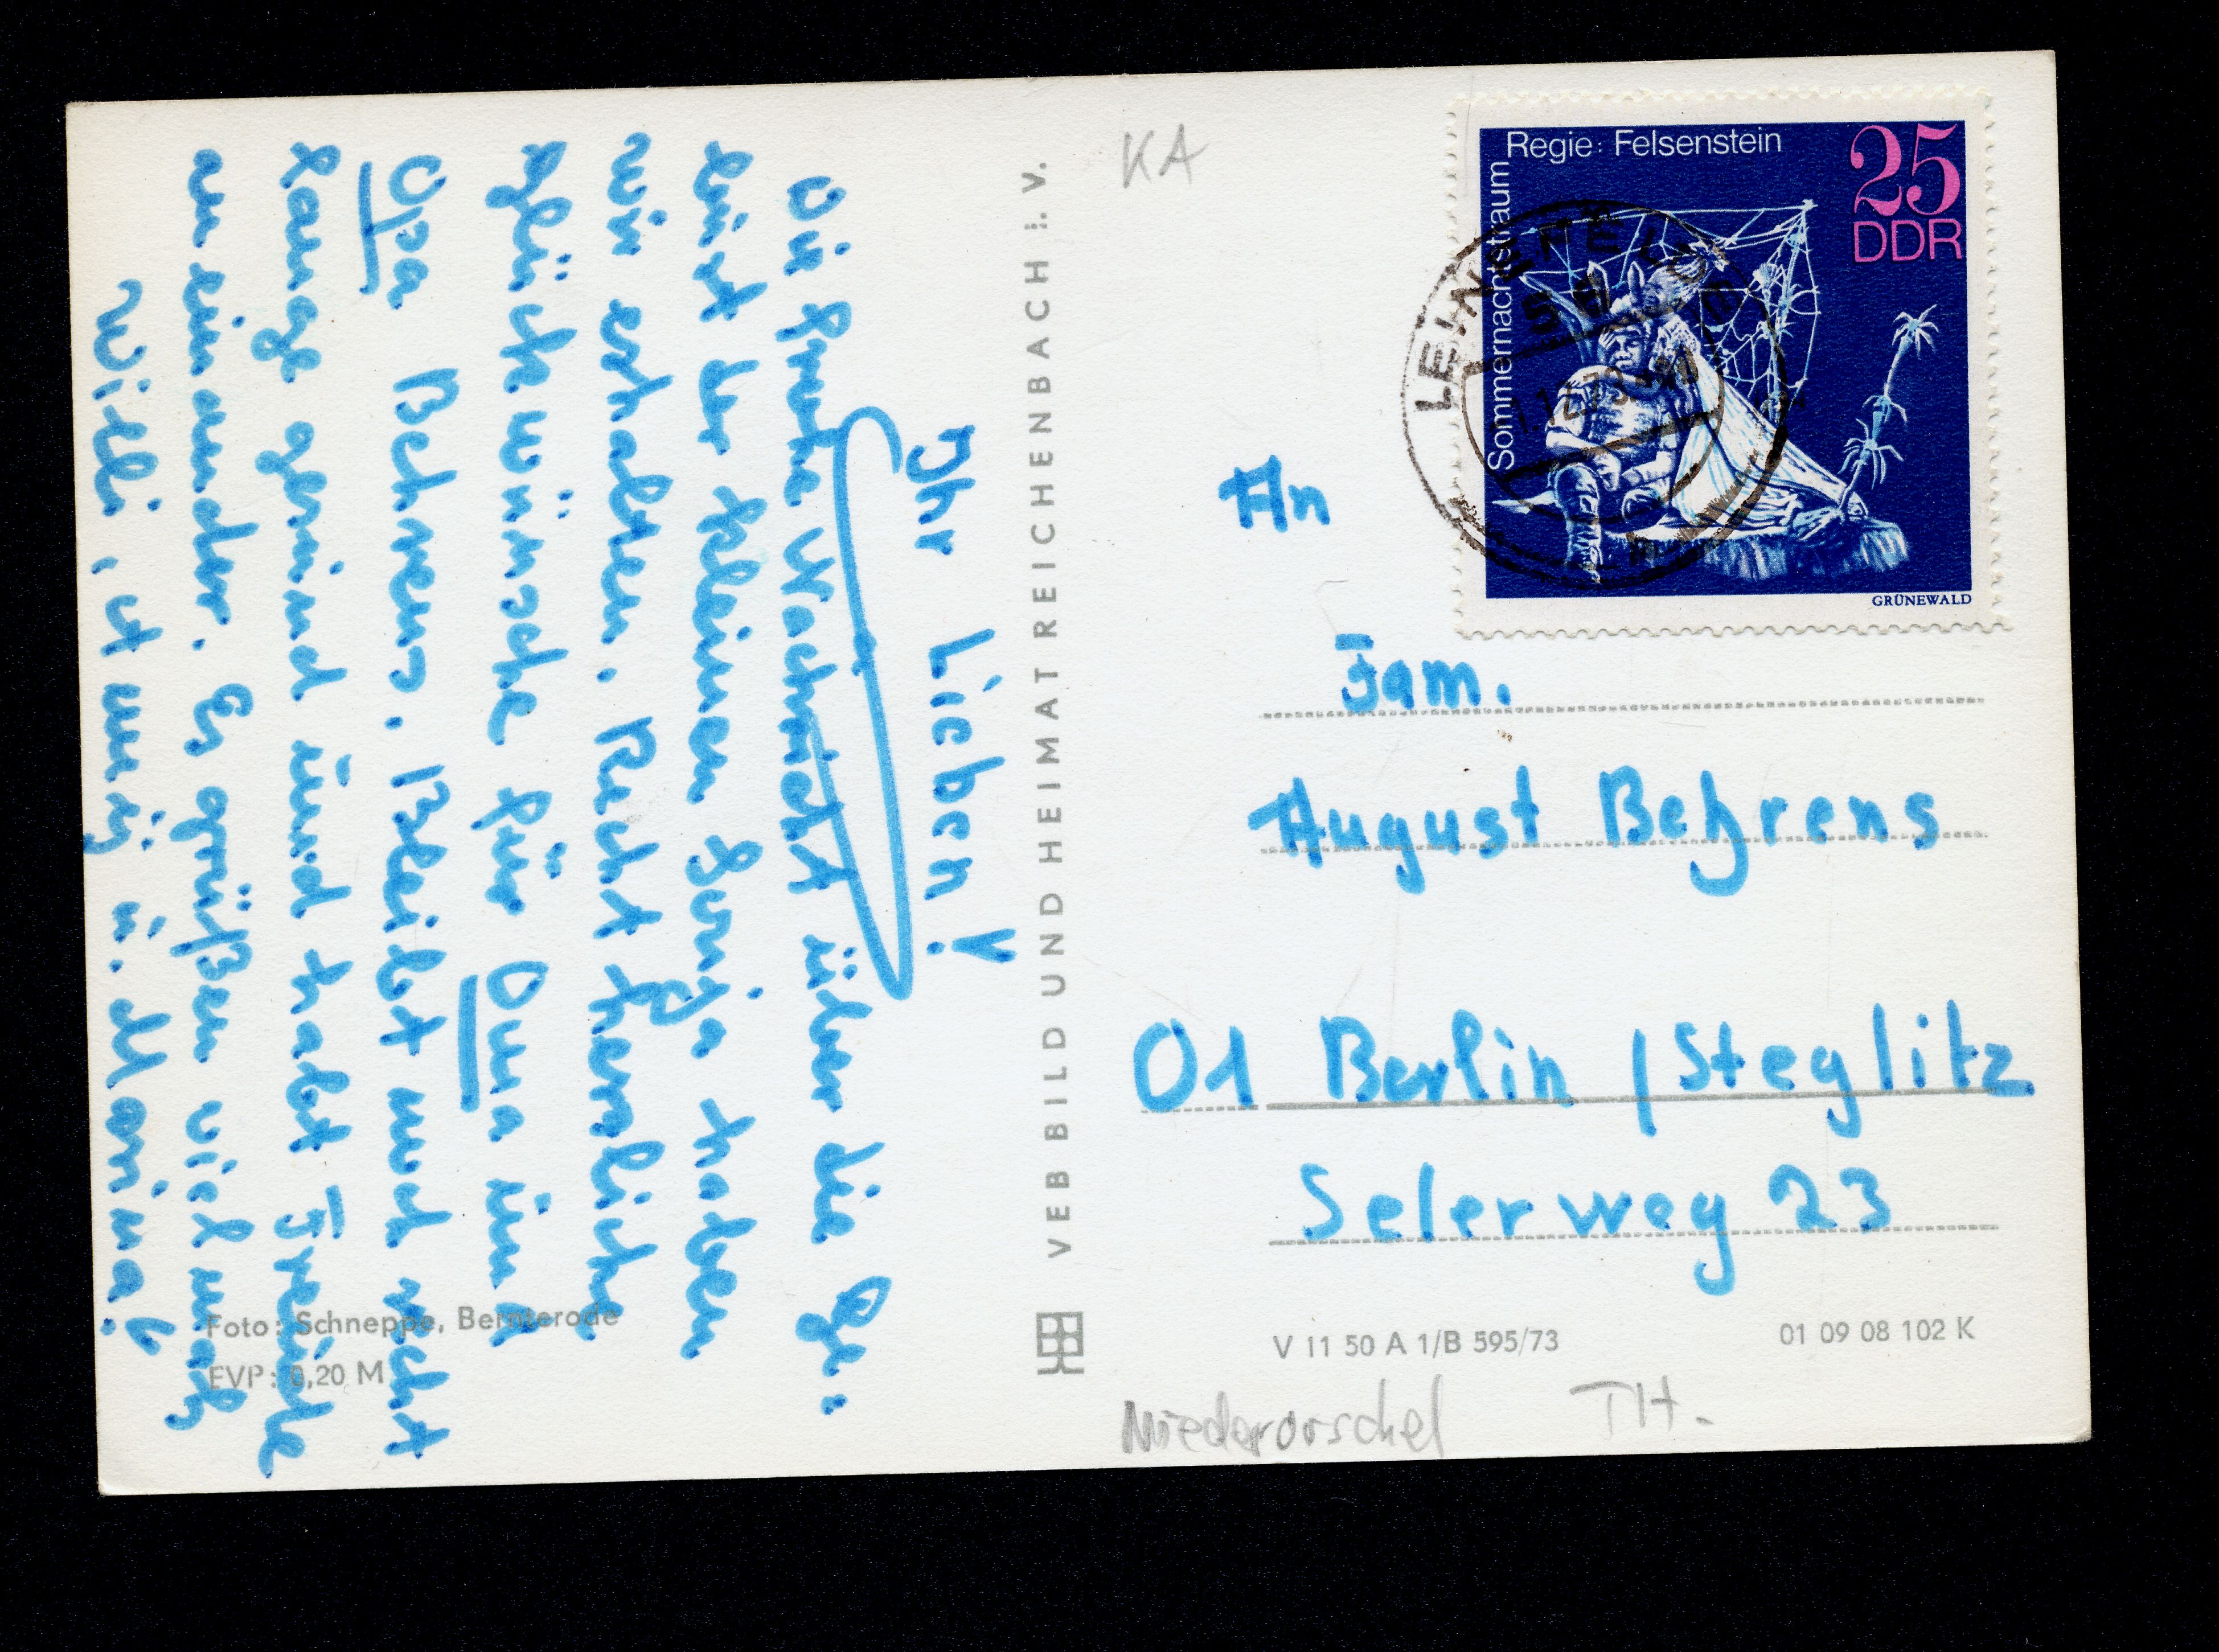 Ihr Lieben!
Die frohe Nachricht über die Ge-
burt der kleinen Sonja haben
wir erhalten. Recht herzliche
Glückwünsche für Oma und
Opa Behrens. Bleibt noch recht
lange gesund und habt Freude
aneinander. Es grüßen vielmals
Willi, u. Monina!
VEB BILD UND HEIMAT REICHENBACH i. V.
Foto: Schneppe, Bernterode
EVP: 0,20 M
KA
Regie: Felsenstein
Sommernachtstraum
25
DDR
GRÜNEWALD
LEINEFELDE
An
Fam.
August Behrens
01 Berlin / Steglitz
Selerweg 23
V 11 50 A 1/B 595/73
01 09 08 102 K
Niederorschel TH.